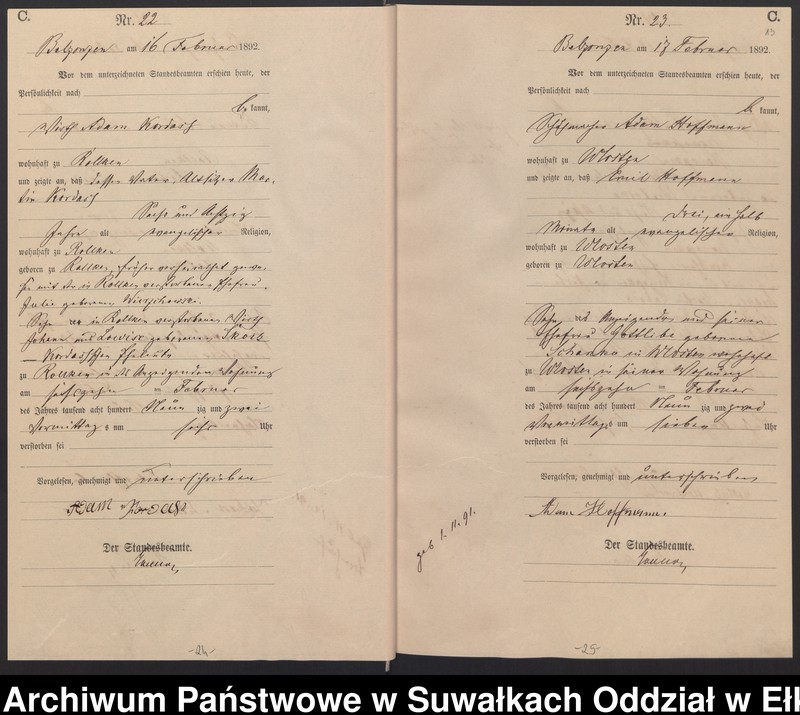 C.
Nr. 22
am 16 Februar 1892.
Vor dem unterzeichneten Standesbeamten erschien heute, der
Persönlichkeit nach
be kannt,
Wirth Adam Kordasch
wohnhaft zu Rollken
und zeigte an, daß dessen Vater, Altsitzer Mar-
tin Kordasch
Sechs und Achtzig
Jahre alt evangelischer Religion,
wohnhaft zu Rollken
geboren zu Rollken, früher verheirathet gewe-
sen mit der in Rollken verstorbenen Ehefrau
Julie geborenen
Sohn der in Rollken verstorbenen Wirth
Johann und Lowise geborenen
Kordaschschen Eheleute
zu Rollken in des Anzeigenden Wohnung
am sechszehn ten Februar
des Jahres tausend acht hundert Neun zig und zwei
Vormittags um sechs Uhr
verstorben sei
Vorgelesen, genehmigt und unterschrieben
Adam Kordasch
Der Standesbeamte.
-24-
C.
Nr. 23
am 17 Februar 1892.
Vor dem unterzeichneten Standesbeamten erschien heute, der
Persönlichkeit nach
be kannt,
Schuhmacher Adam Hoffmann
wohnhaft zu Wlosten
und zeigte an, daß Emil Hoffmann
drei, ein halb
Monate alt evangelischer Religion,
wohnhaft zu Wlosten
geboren zu Wlosten
Sohn des Anzeigenden und seiner
Ehefrau Gottliebe geborenen
in Wlosten wohnhaft
zu Wlosten in seiner Wohnung
am sechszehn ten Februar
des Jahres tausend acht hundert Neun zig und zwei
Vormittags um sieben Uhr
verstorben sei
Vorgelesen, genehmigt und unterschrieben
Adam Hoffmann.
geb 1. 11. 91.
Der Standesbeamte.
-25-
Archiwum Państwowe w Suwałkach Oddział w Ełk